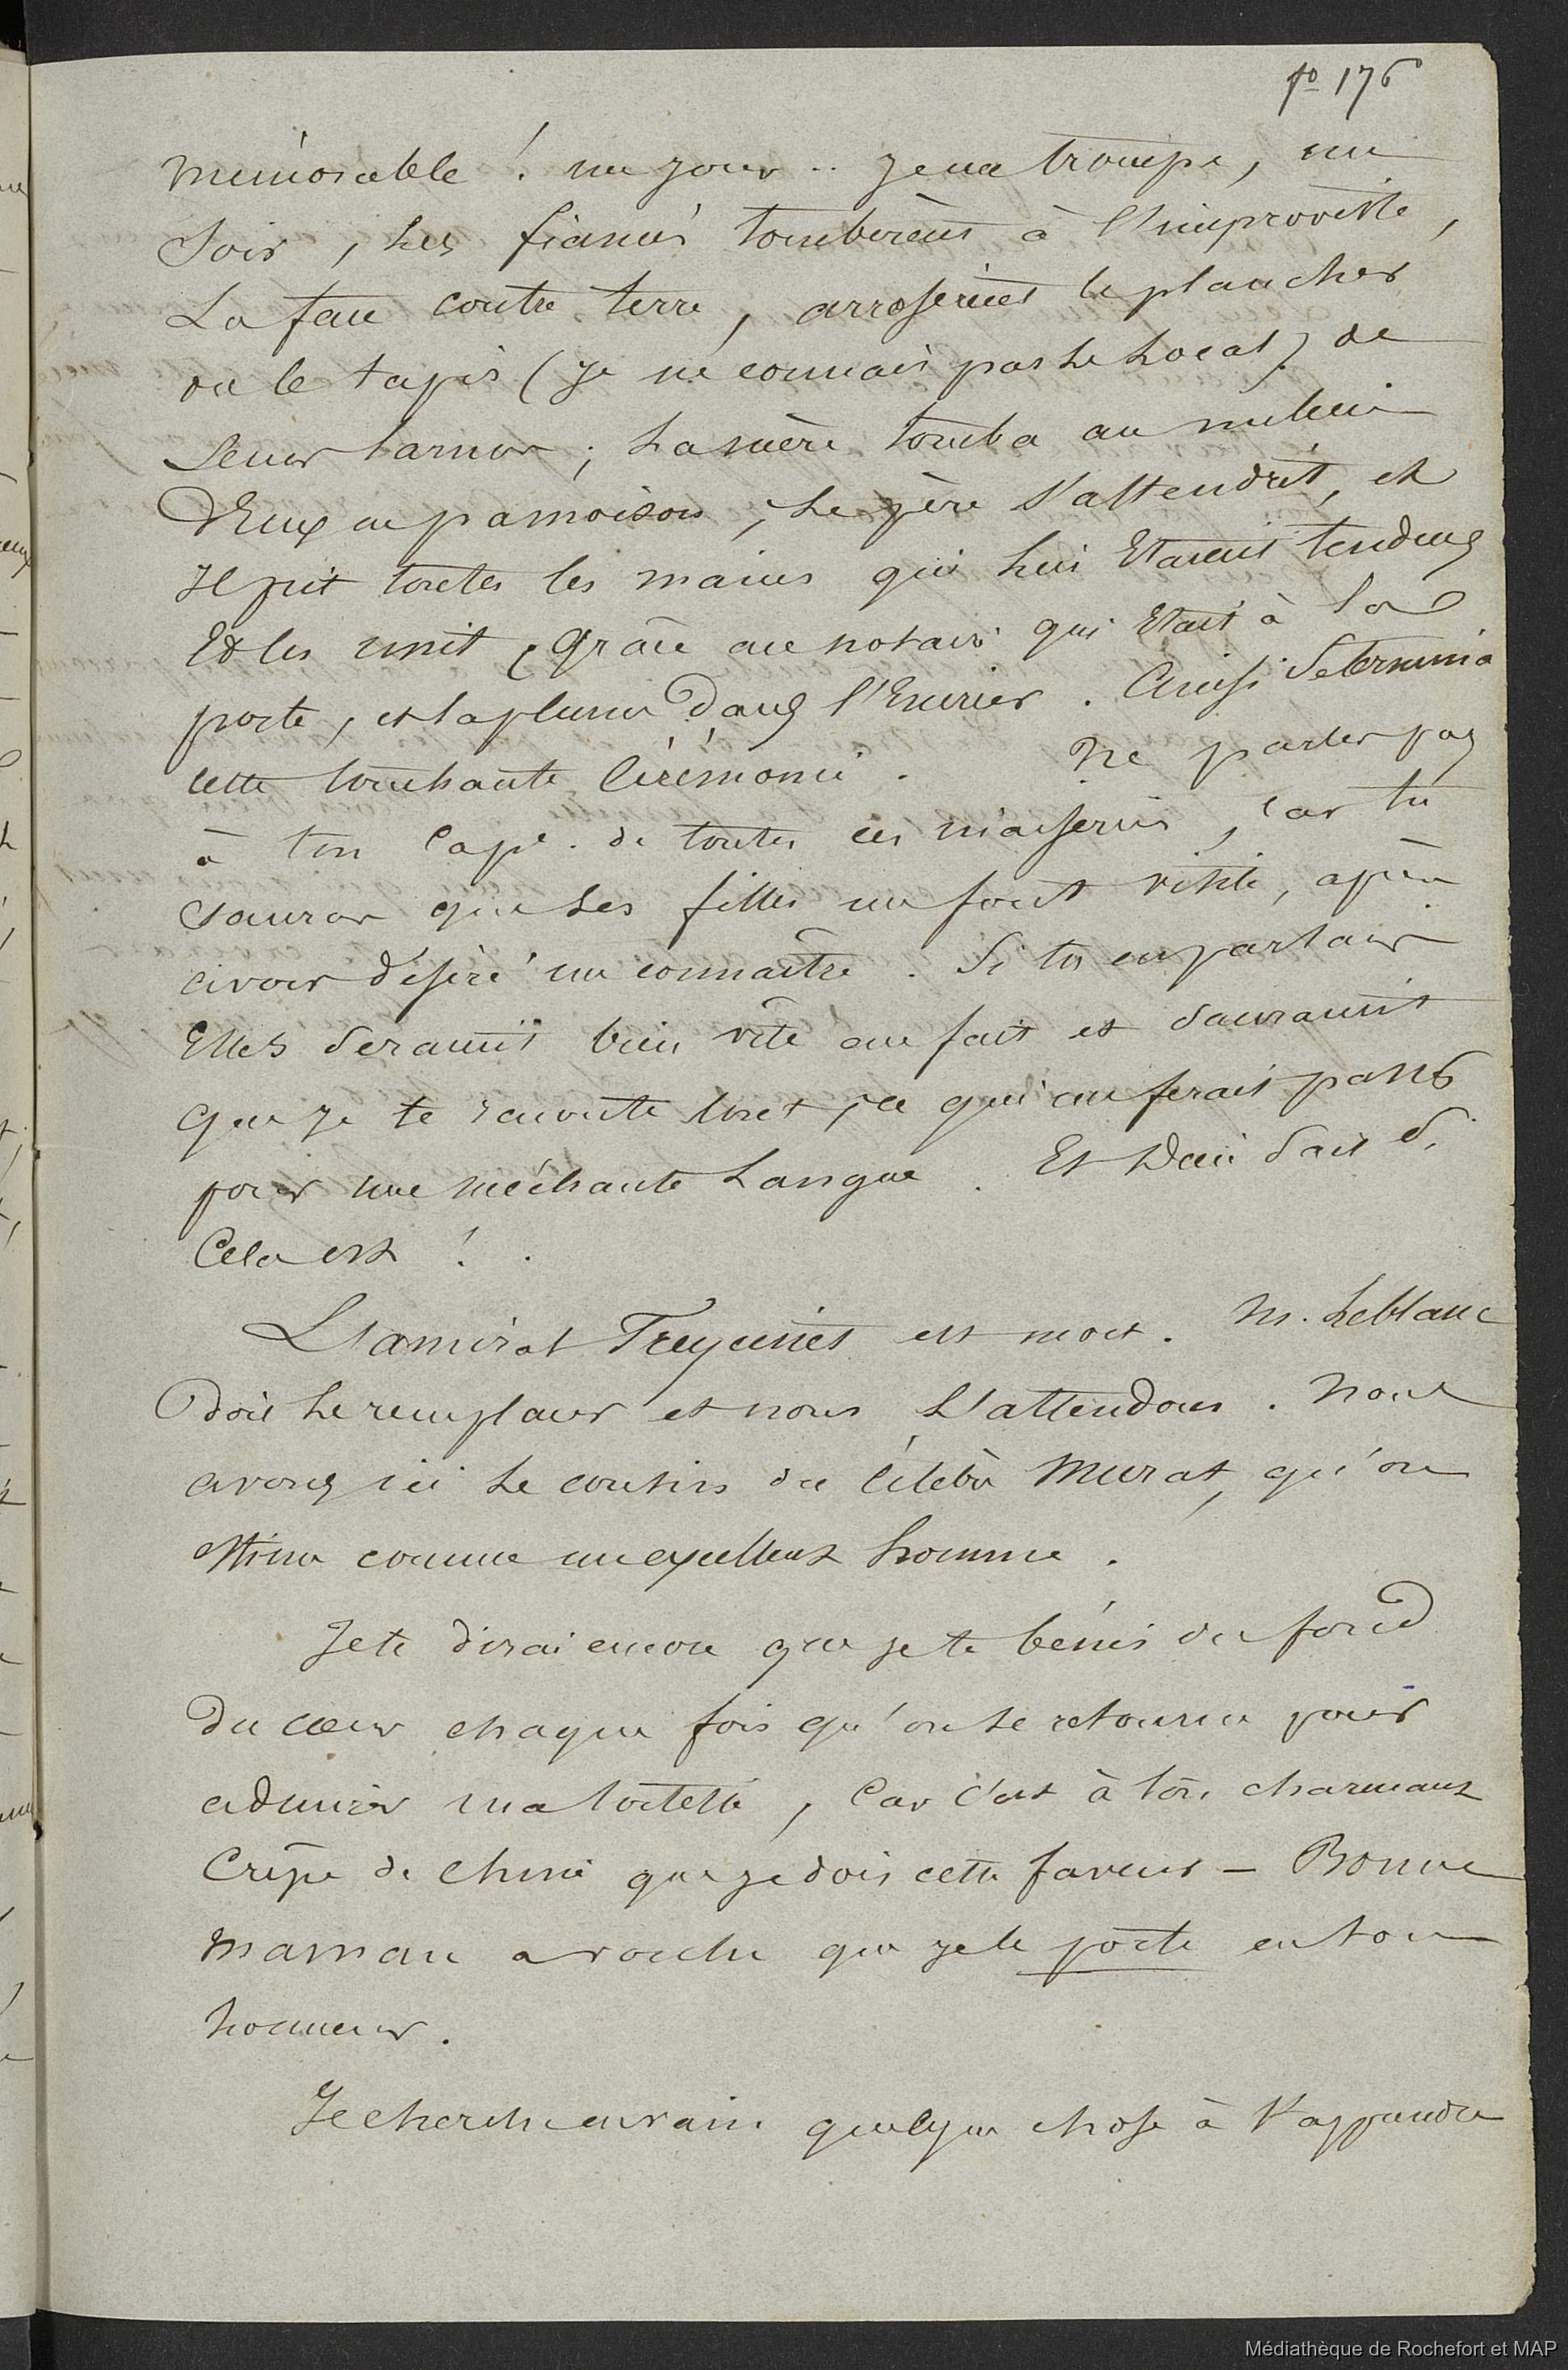 fo 176
mémorable ! un jour .. je me trompe, un
soir, les fiancés tombèrent à l'improviste,
La face contre terre, arrosèrent le plancher
ou le tapis (je ne connais pas le local) de
leurs larmes ; La mère tomba au milieu
D'Eux en pamoison ; Le père s'attendrit, et
Il prit toutes les mains qui lui Etaient tendues
Et les unit, grâce au notaire qui Etait à la
porte, et la plume Dans l'Encrier. Ainsi Se termina
cette touchante Cérémonie. Ne parles pas
à ton Capne. de toutes ces niaiseries, car tu
sauras que Les filles me font visite, après
avoir désiré me connaître. Si tu en parlais
Elles Seraient bien vite au fait et Sauraient
que je te raconte tout, ce qui me ferait passer
pour une méchante Langue. Et Dieu Sait Si
Cela est ! .
L'amiral est mort. M. Leblanc
Doit Le remplacer et nous L'attendons. Nous
avons ici Le cousin du Célèbre Murat, qu'on
estime comme un excellent homme.
Je te dirai encore que je te bénis du fond
Du cœur chaque fois qu'on se retourne pour
admirer ma toilette, Car c'est à ton charmant
Crêpe de Chine que je dois cette faveur - Bonne
maman a voulu que je le porte en ton
honneur.
Je cherche en vain quelque chose à t'apprendre
Médiathèque de Rochefort et MAP